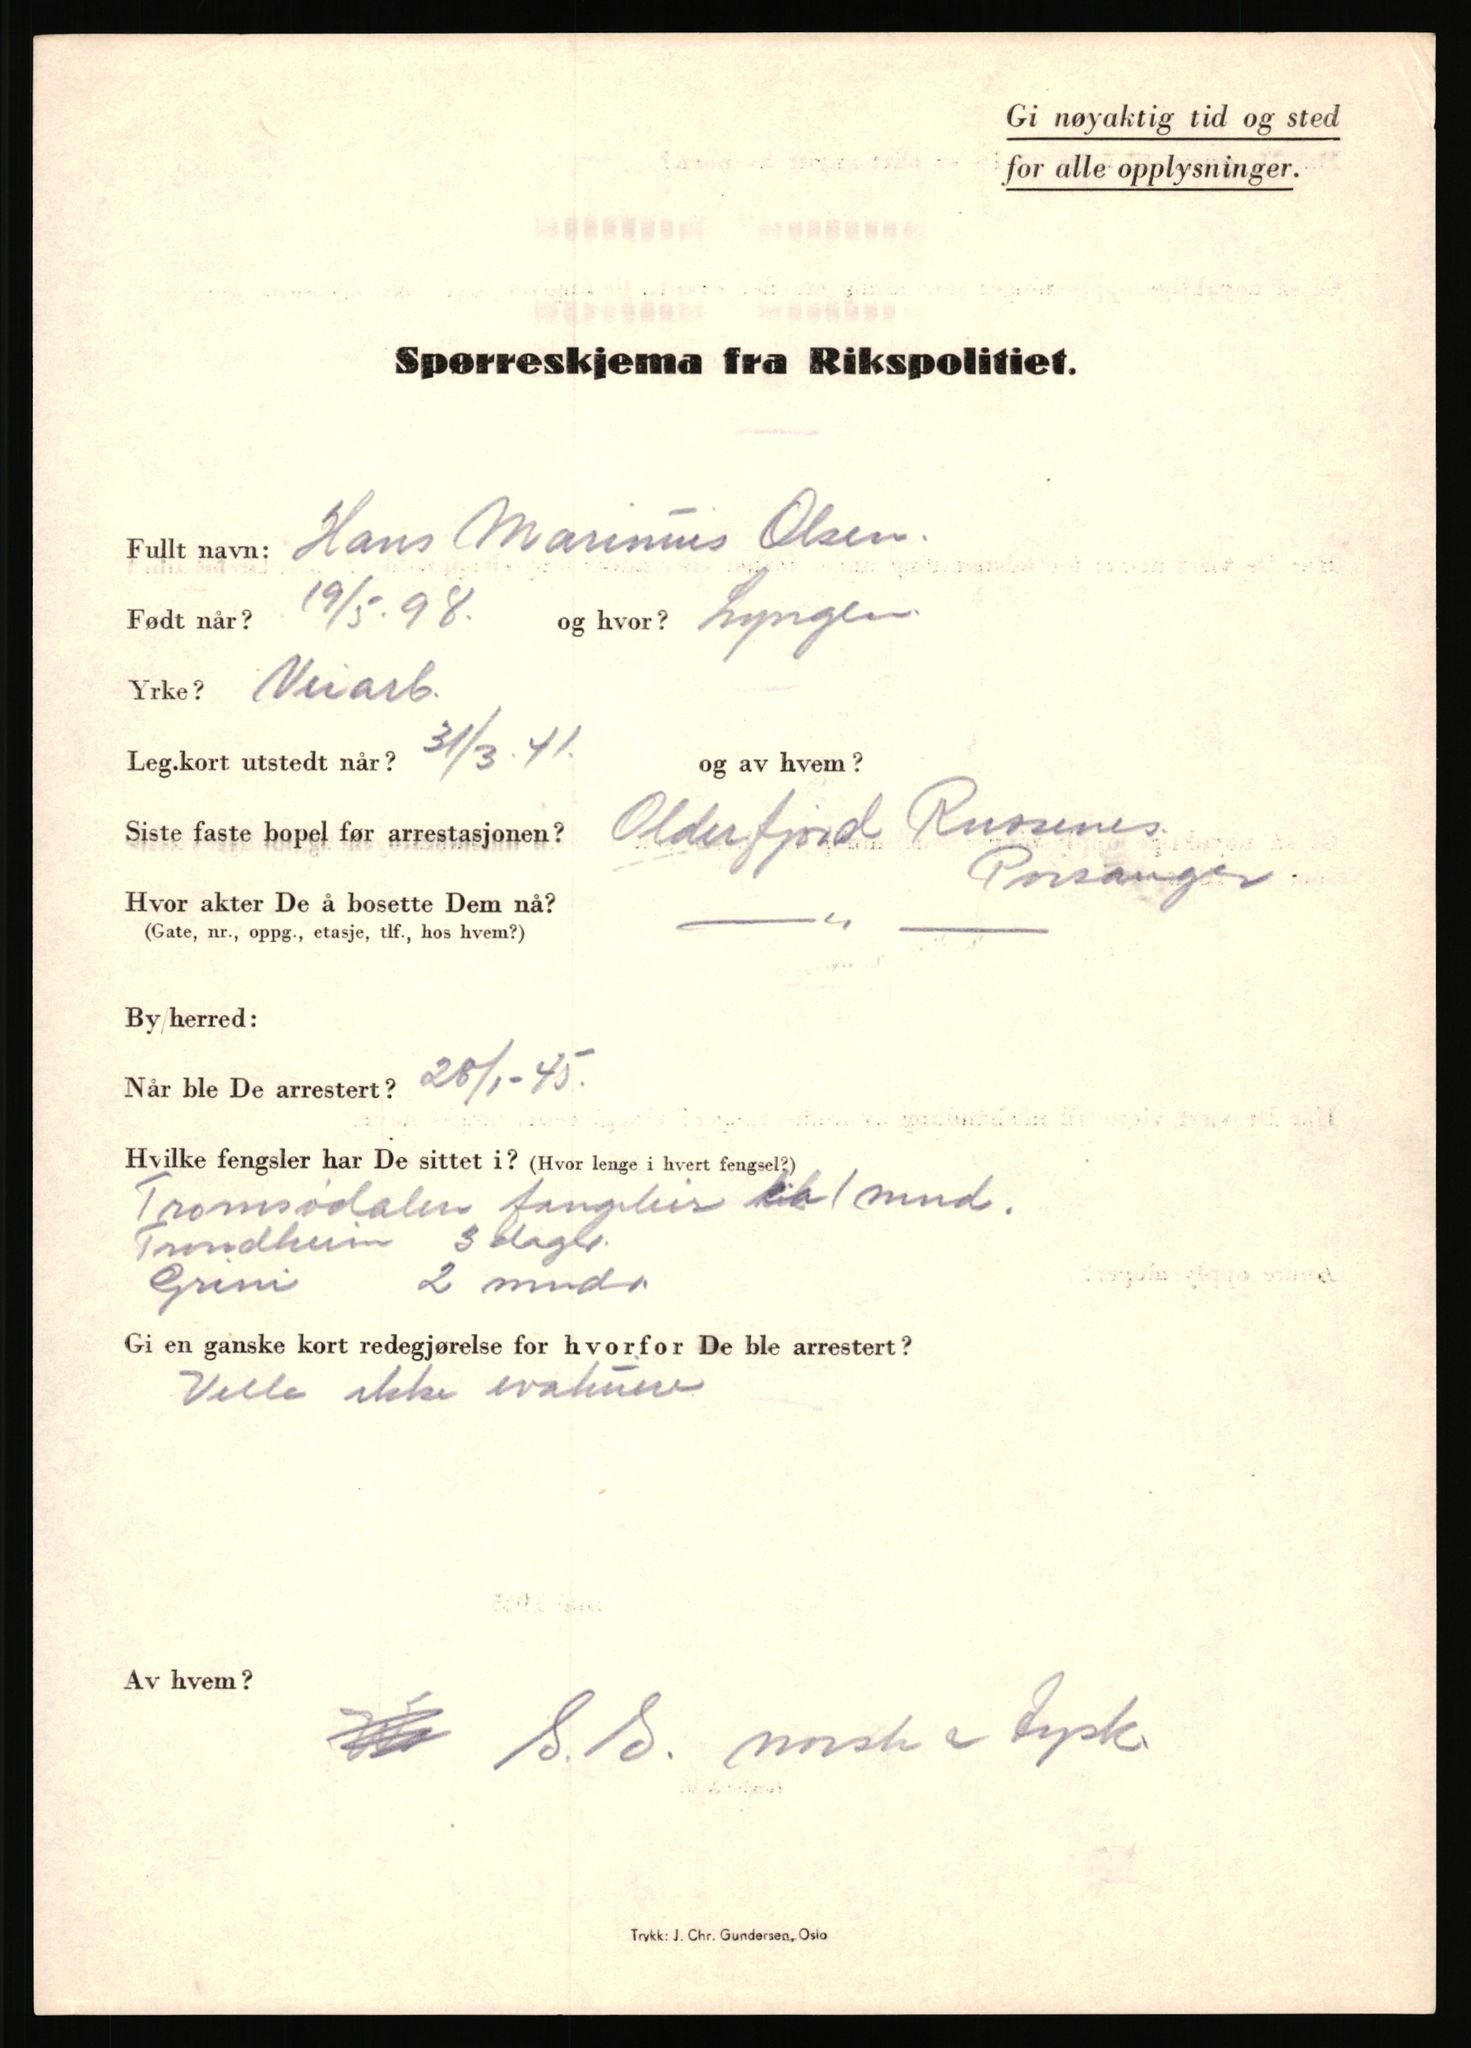 Gi nøyaktig tid og sted
for alle opplysninger.
Spørreskjema fra Rikspolitiet.
Fullt navn: Hans Marinius Olsen.
Født når? 19/5. 98. og hvor? Lyngen.
Yrke? Veiarb.
Leg.kort utstedt når? 31/3. 41. og av hvem?
Siste faste bopel før arrestasjonen? Olderfjord Russenes.
Porsanger.
Hvor akter De å bosette Dem nå? —— " ——
(Gate, nr., oppg., etasje, tlf., hos hvem?)
By/herred:
Når ble De arrestert? 28/1-45.
Hvilke fengsler har De sittet i? (Hvor lenge i hvert fengsel?)
Tromsødalen fangeleir 1 mnd.
Trondheim 3 dager.
Grini 2 mndr.
Gi en ganske kort redegjørelse for hvorfor De ble arrestert?
Ville ikke evakuere
Av hvem?
S.S. norsk & tysk.
Trykk: J. Chr. Gundersen, Oslo